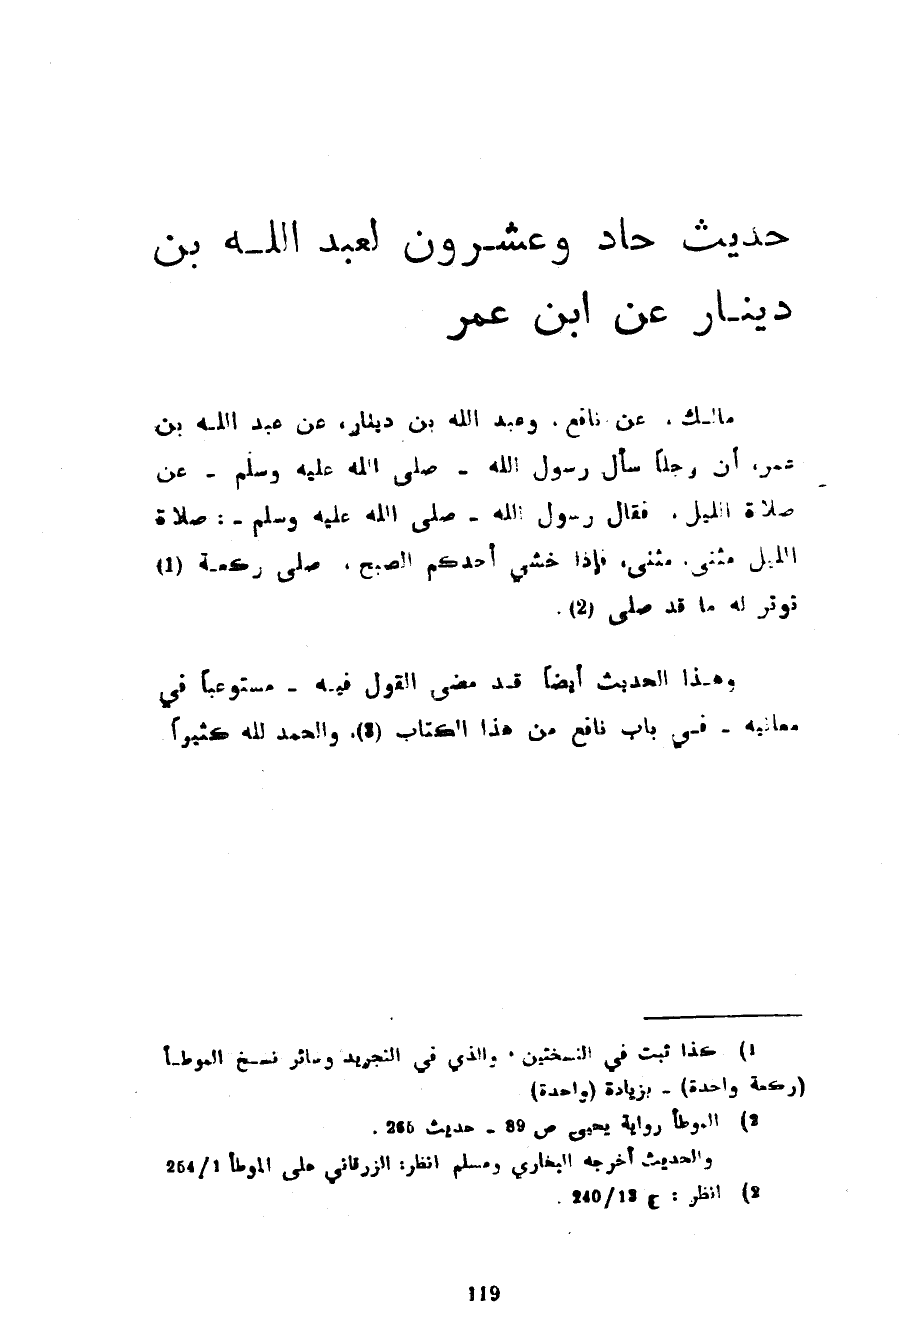 حديث حاد وعشرون لعبد الله بن
دينار عن ابن عمر
مالك، عن نافع، وعبد الله بن دينار، عن عبد الله بن
عمر، أن رجلاً سأل رسول الله - صلى الله عليه وسلم - عن
صلاة الليل، فقال رسول الله - صلى الله عليه وسلم - : صلاة
الليل مثنى، مثنى، فإذا خشي أحدكم الصبح، صلى ركعة (1)
توتر له ما قد صلى (2).
وهذا الحديث أيضاً قد مضى القول فيه - مستوعباً في
معانيه - في باب نافع من هذا الكتاب (3)، والحمد لله كثيراً
1) كذا ثبت في النسختين. والذي في التجريد وسائر نسخ الموطأ
(ركعة واحدة) - بزيادة (واحدة)
2) الموطأ رواية يحيى ص 89 - حديث 266.
والحديث أخرجه البخاري ومسلم انظر: الزرقاني على الموطأ 1/254
2) انظر : ج 13/240.
119